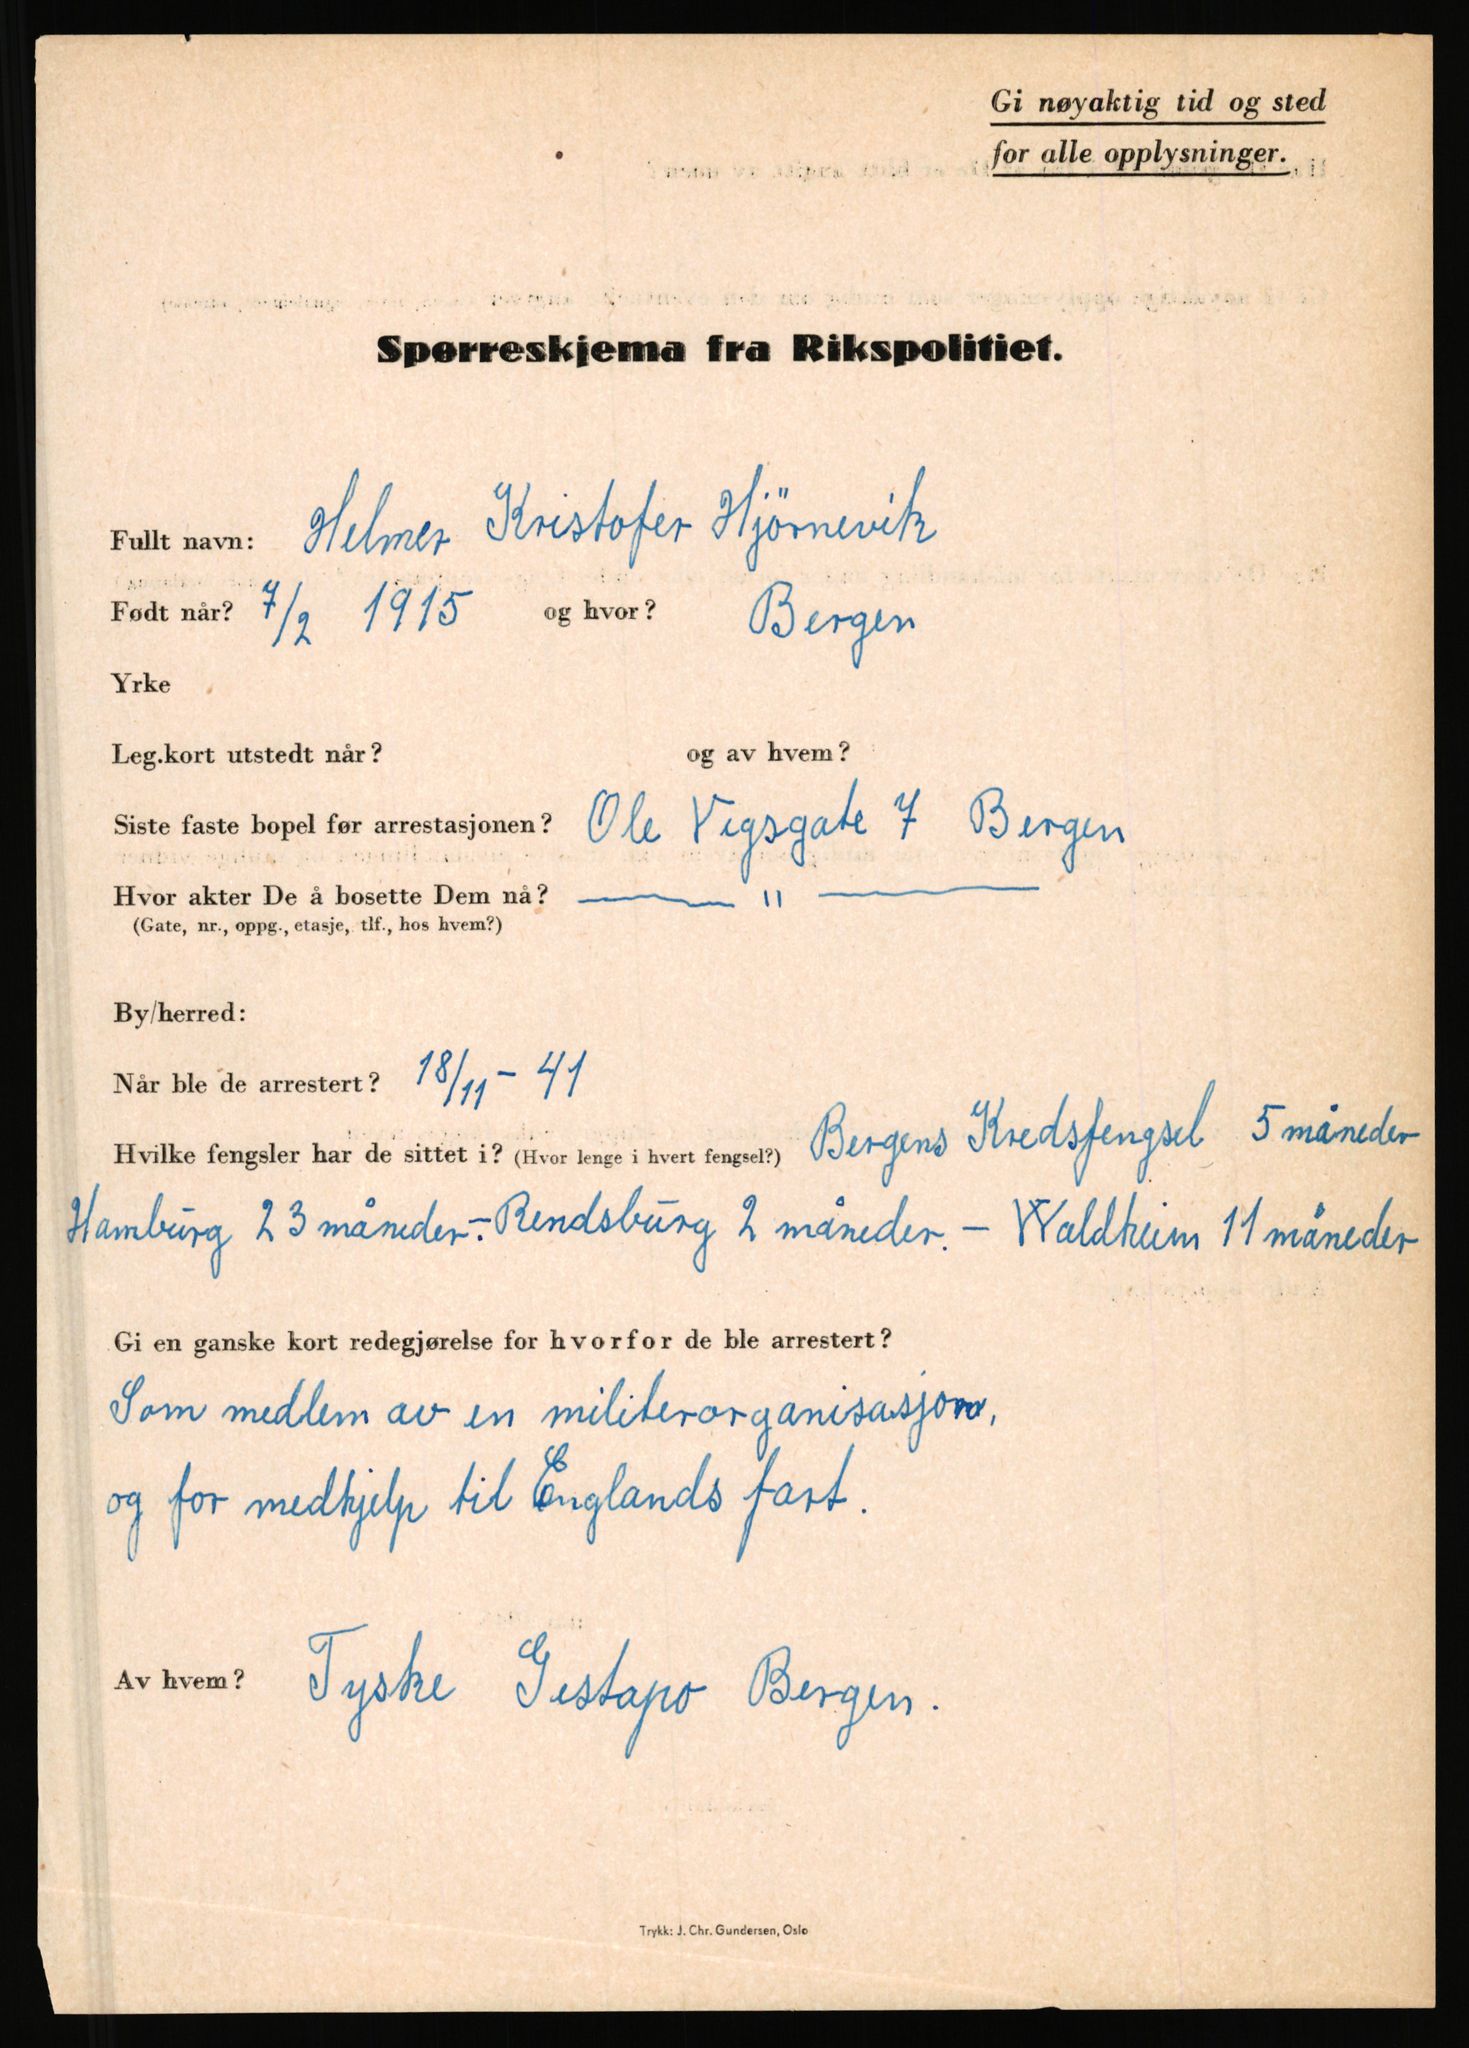 Gi nøyaktig tid og sted
for alle opplysninger.
Spørreskjema fra Rikspolitiet.
Fullt navn: Helmer Kristofer Hjörnevik
Født når? 7/2 1915 og hvor? Bergen
Yrke
Leg.kort utstedt når? og av hvem?
Siste faste bopel før arrestasjonen? Ole Vigsgate 7 Bergen
Hvor akter De å bosette Dem nå? — " —
(Gate, nr., oppg., etasje, tlf., hos hvem?)
By/herred:
Når ble de arrestert? 18/11 - 41
Hvilke fengsler har de sittet i? (Hvor lenge i hvert fengsel?) Bergens Kredsfengsel 5 måneder
Hamburg 23 måneder.- Rendsburg 2 måneder. - Waldheim 11 måneder
Gi en ganske kort redegjørelse for hvorfor de ble arrestert?
Som medlem av en militerorganisasjon,
og for medhjelp til Englands fart.
Av hvem? Tyske Gestapo Bergen.
Trykk: J. Chr. Gundersen, Oslo